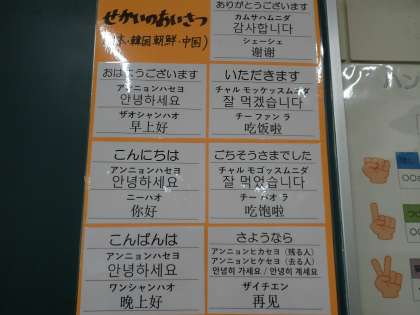 せかいのあいさつ
本・韓国朝鮮・中国)
ありがとうございます
カムサハムニダ
감사합니다
シェーシェ
谢谢
おはようございます
アンニョンハセヨ
안녕하세요
ザオシャンハオ
早上好
いただきます
チャル モッケッスムニダ
잘 먹겠습니다
チー ファン ラ
吃饭啦
こんにちは
アンニョンハセヨ
안녕하세요
ニーハオ
你好
ごちそうさまでした
チャル モゴッスムニダ
잘 먹었습니다
チー バオ ラ
吃饱啦
こんばんは
アンニョンハセヨ
안녕하세요
ワンシャンハオ
晚上好
さようなら
アンニョンヒカセヨ (残る人)
アンニョンヒケセヨ (去る人)
안녕히 가세요 / 안녕히 계세요
ザイチエン
再见
ハン